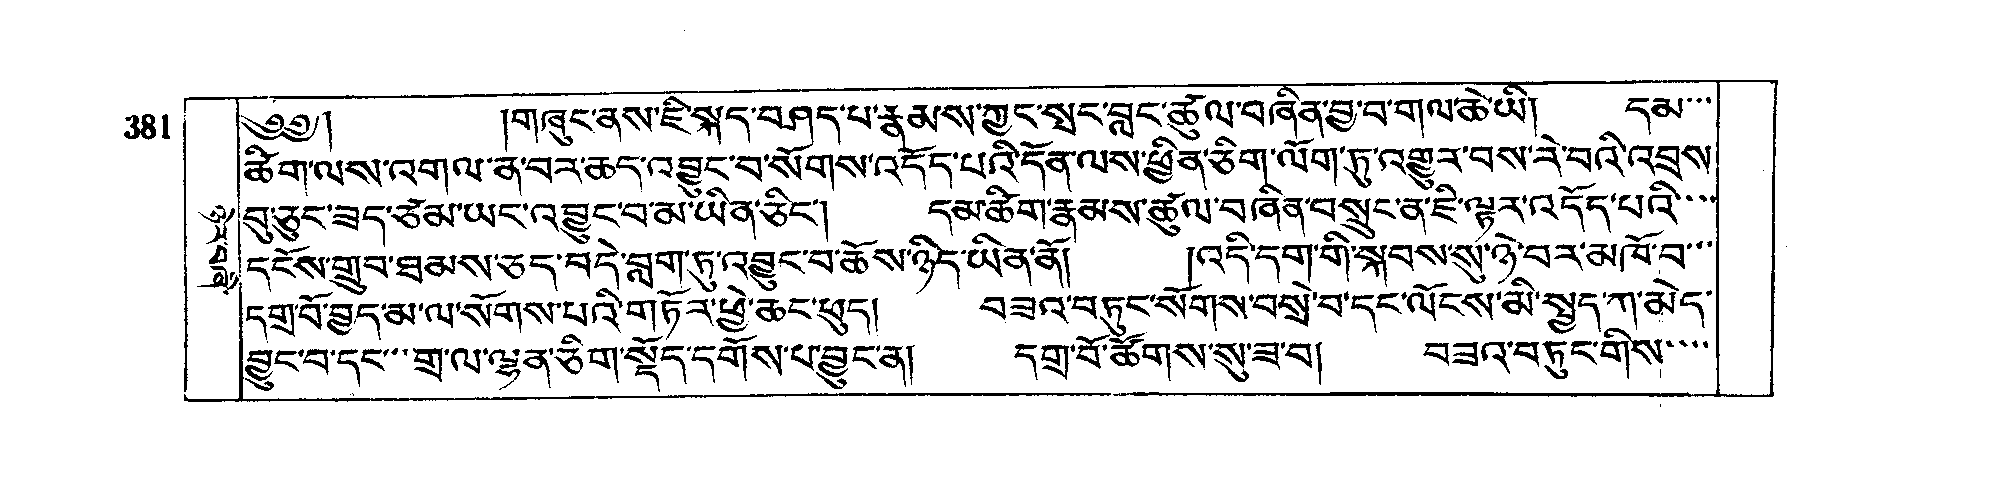 381
༄༅། །གཞུང་ནས་ཇི་སྐད་བཤད་པ་རྣམས་ཀྱང་སྤང་བླང་ཚུལ་བཞིན་བྱ་བ་གལ་ཆེ་ཡི། དམ་་་
ཚིག་ལས་འགལ་ན་བར་ཆད་འབྱུང་བ་སོགས་འདོད་པའི་དོན་ལས་ཕྱིན་ཅིག་ལོག་ཏུ་འགྱུར་བས་རེ་བའི་འབྲས
བུ་ཅུང་ཟད་ཙམ་ཡང་འབྱུང་བ་མ་ཡིན་ཅིང་། དམ་ཚིག་རྣམས་ཚུལ་བཞིན་བསྲུང་ན་ཇི་ལྟར་འདོད་པའི་་་་
དངོས་གྲུབ་ཐམས་ཅད་བདེ་བླག་ཏུ་འབྱུང་བ་ཆོས་ཉིད་ཡིན་ནོ། །འདི་དག་གི་སྐབས་སུ་ཉེ་བར་མཁོ་བ་་་
དགྲ་བོ་བྱད་མ་ལ་སོགས་པའི་གཏོར་ཕྱེ་ཆང་ཕུད། བཟའ་བཏུང་སོགས་བསྲེ་བ་དང་ལོངས་མི་སྤྱད་ཀ་མེད་
བྱུང་བ་དང་་་གྲ་ལ་ལྷན་ཅིག་སྡོད་དགོས་པ་བྱུང་ན། དགྲ་བོ་ཚོགས་སུ་ཟ་བ། བཟའ་བཏུང་གིས་་་་